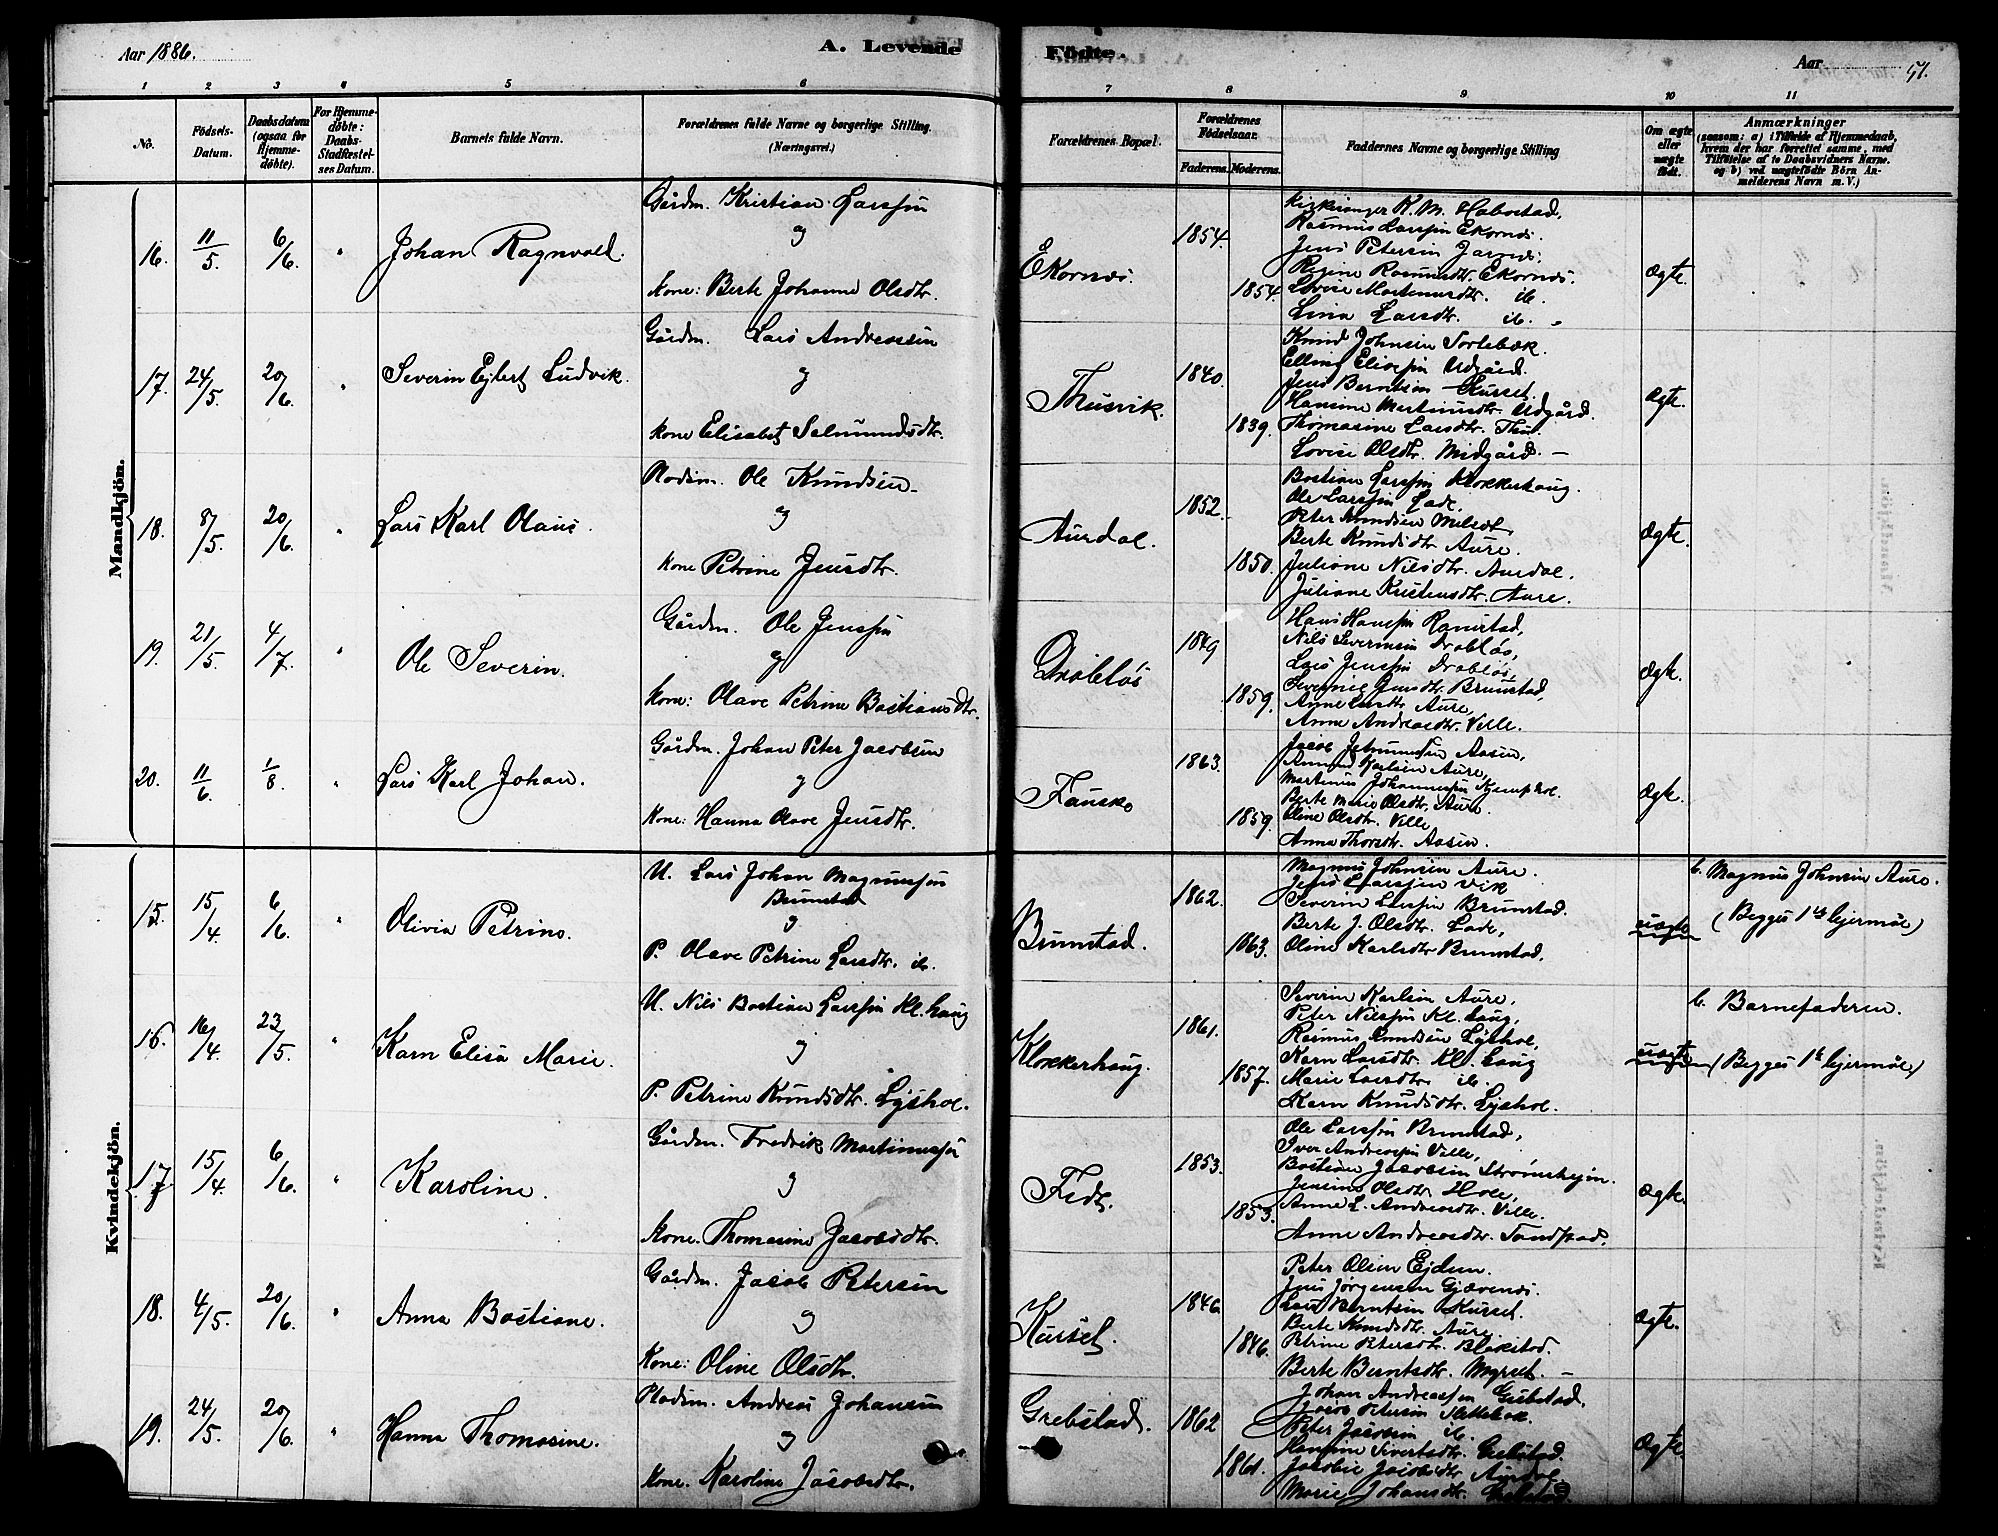 Aar 1886.
A. Levende Födte.
Aar
51.
1 2 3 4 5 6 7 8 9 10 11
No.
Födsels-Datum.
Daabsdatum (ogsaa for Hjemme-døbte).
For Hjemme-døbte: Daabs-Stadfæstel-ses Datum.
Barnets fulde Navn.
Forældrenes fulde Navne og borgerlige Stilling.
(Næringsvei.)
Forældrenes Bopæl.
Forældrenes Födselsaar.
Faderens. Moderens.
Faddernes Navne og borgerlige Stilling
Om ægte eller uægte født.
Anmærkninger
(saasom: a) i Tilfælde af Hjemmedaab,
hvem der har forrettet samme, med
Tilföielse af to Daabsvidners Navne.
og b) ved uægtefödte Börn An-
melderens Navn m. V.)
Mandkjön.
16. 11/5. 6/6. " Johan Ragnvald.
Gårdm. Kristian Larssen
og
Kone: Berte Johanne Olsdtr.
Ekornæs. 1854. 1854.
Kirkesanger K. M. Habostad,
Rasmus Larssen Ekornæs.
Jens Petersen Jarnæs.
Regine Rasmusdtr. Ekornæs.
Lovise Martinusdtr. ib.
Lina Larsdtr. ib. "
ægte.
17. 24/5. 20/6. " Severin Ejlert Ludvik.
Gårdm. Lars Andreassen
og
Kone Elisabet Salmundsdtr.
Thusvik. 1840. 1839.
Knud Johnsen Sorlebøk.
Elling Eliassen Udgård.
Jens Berntsen Kurset.
Hansine Martinusdtr. Udgård.
Thomasine Larsdtr. Thu.
Lovise Olsdtr. Midgård. —
ægte.
18. 8/5. 20/6. " Lars Karl Olaus.
Pladsm. Ole Knudsen
og
Kone Petrine Jensdtr.
Aurdal. 1852. 1850.
Bastian Larssen Klokkerhaug.
Ole Larssen Lade,
Peter Knudsen
Berte Knudsdtr Aure.
Juliane Nilsdtr. Aurdal.
Juliane Kristensdtr. Aure.
ægte.
19. 21/5. 4/7. " Ole Severin.
Gårdm. Ole Jenssen
og
Kone: Olave Petrine Bastiansdtr.
Drabløs 1849 1859.
Hans Hanssen Ramstad,
Nils Severinsen Drabløs,
Lars Jenssen Drabløs,
Jensdtr. Brunstad,
Anne Larsdtr Aure,
Anne Andreasdtr. Velle.
ægte.
20. 11/6. 1/8. " Lars Karl Johan.
Gårdm. Johan Peter Jacobsen
og
Kone: Hanna Olave Jensdtr.
Fausko 1863. 1859.
Jacob Aasen,
Karlsen Aure,
Martinus Johannessen
Berte Marie Olsdtr. Aure
Oline Olsdtr. Velle
Anna Thorsdtr. Aasen.
ægte.
Kvindekjön.
15. 15/4. 6/6. " Olivia Petrine.
U. Lars Johan Magnussen
Brunstad
og
P. Olave Petrine Larsdtr. ib.
Brunstad. 1862. 1863.
Magnus Johnsen Aure.
Jens Larssen Vik
Severin Larssen Brunstad.
Berte J. Olsdtr. Lade,
Oline Karlsdtr Brunstad.
uægte
b. Magnus Johnsen Aure.
(Begges 1ste lejermål)
16. 16/4. 23/5. " Karn Elisa Marie.
U. Nils Bastian Larssen Kl. haug
og
P. Petrine Knudsdtr. Lyshol.
Klokkerhaug. 1861. 1857.
Severin Karlsen Aure,
Peter Nilssen Kl. haug,
Rasmus Knudsen Lyshol,
Karn Larsdtr. Kl. haug
Marie Larsdtr ib.
Karn Knudsdtr. Lyshol.
uægte
b. Barnefaderen.
(Begges 1ste lejermål)
17. 15/4. 6/6. " Karoline.
Gårdm. Fredrik Martinussen
og
Kone. Thomasine Jacobsdtr.
Fedt. 1853. 1853.
Ole Larssen Brunstad,
Iver Andreassen Velle,
Bastian Jacobsen Strømshejm.
Jensine Olsdtr. Hole,
Anne L. Andreasdtr. Velle.
Anne Andreasdtr. Tandstad.
ægte.
18. 4/5. 20/6. " Anna Bastiane.
Gårdm. Jacob Petersen
og
Kone: Oline Olsdtr.
Kurset. 1846. 1846.
Peter Olsen Ejdem.
Jens Jørgensen Gjævenæs.
Lars Berntsen Kurset.
Berte Knudsdtr. Aure.
Petrine Petersdtr. Blakstad.
Berte Berntsdtr. Myrset. —
ægte.
19. 24/5. 20/6. " Hanna Thomasine.
Pladsm. Andreas Johansen
og
Kone. Karoline Jacobsdtr.
Grebstad. 1862 1861.
Johan Andreassen Grebstad.
Jacob Petersen
Peter Jacobsen ib.
Hansine Sivertsdtr. Grebstad.
Jacobie Jacobsdtr. Aurdal
Marie Johansdtr. Grebstad.
ægte